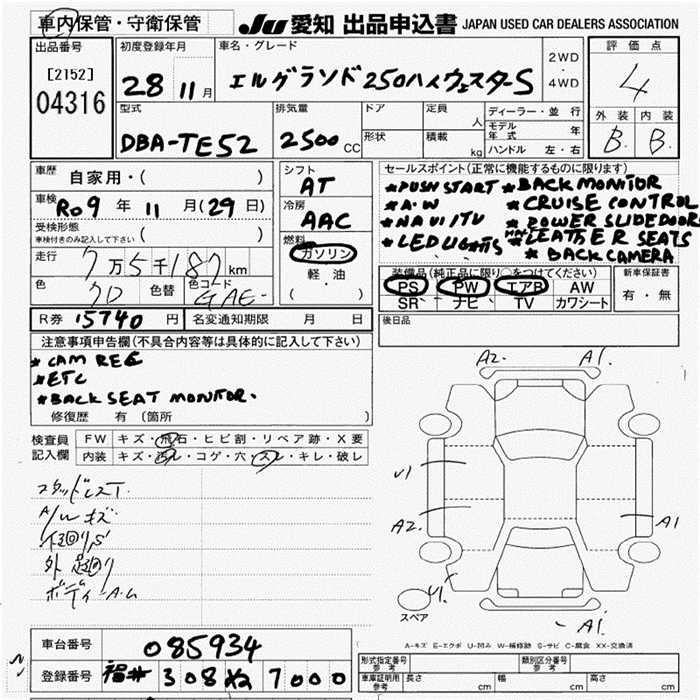 車内保管・守衛保管 JU 愛知 出品申込書 JAPAN USED CAR DEALERS ASSOCIATION
出品番号
[2152]
04316
初度登録年月
28 11月
車名・グレード
エルグランド250ハイウェスターS
2WD
・
4WD
評価点
4
外装 内装
B. B.
型式
DBA-TE52
排気量
2500 CC
ドア
形状
定員
人
積載
kg
ディーラー・並行
モデル年式 年
ハンドル 左・右
車歴
自家用・( )
車検
R09年 11月(29日)
受検形態
車検付きのみ記入して下さい ( )
走行
7万5千187km
色 色替 色コード
GAE-
シフト
AT
冷房
AAC
燃料
ガソリン
軽・油
( )
セールスポイント(正常に機能するものに限ります)
*PUSH START *BACK MONITOR
*A.W *CRUISE CONTROL
*NAVI/TV *POWER SLIDE DOOR
*LED LIGHTS LEATHER SEATS
*BACK CAMERA
装備品(純正品に限り○をつけてください)
PS PW エアB AW
SR ナビ TV カワシート
新車保証書
有・無
R券 15740円 名変通知期限 月 日
後日品
注意事項申告欄(不具合内容等は具体的に記入して下さい)
*CAM REG
*ETC
*BACK SEAT MONITOR.
修復歴 有 (箇所
検査員
記入欄
FW キズ・飛石・ヒビ割・リペア跡・X要
内装 キズ・汚レ・コゲ・穴・スレ・キレ・破レ
スタッドレスT.
A/Wキズ
下廻りS
外
ボディーA.U
A2. A1.
U1
A2.
A1
U1.
A1.
スペア
A-キズ E-エクボ U-凹み W-補修跡 S-サビ C-腐食 XX-交換済
車台番号
085934
登録番号
308 7000
型式指定番号
参考
類別区分番号
参考
車庫証明用
参考
長さ cm 幅 cm 高さ cm